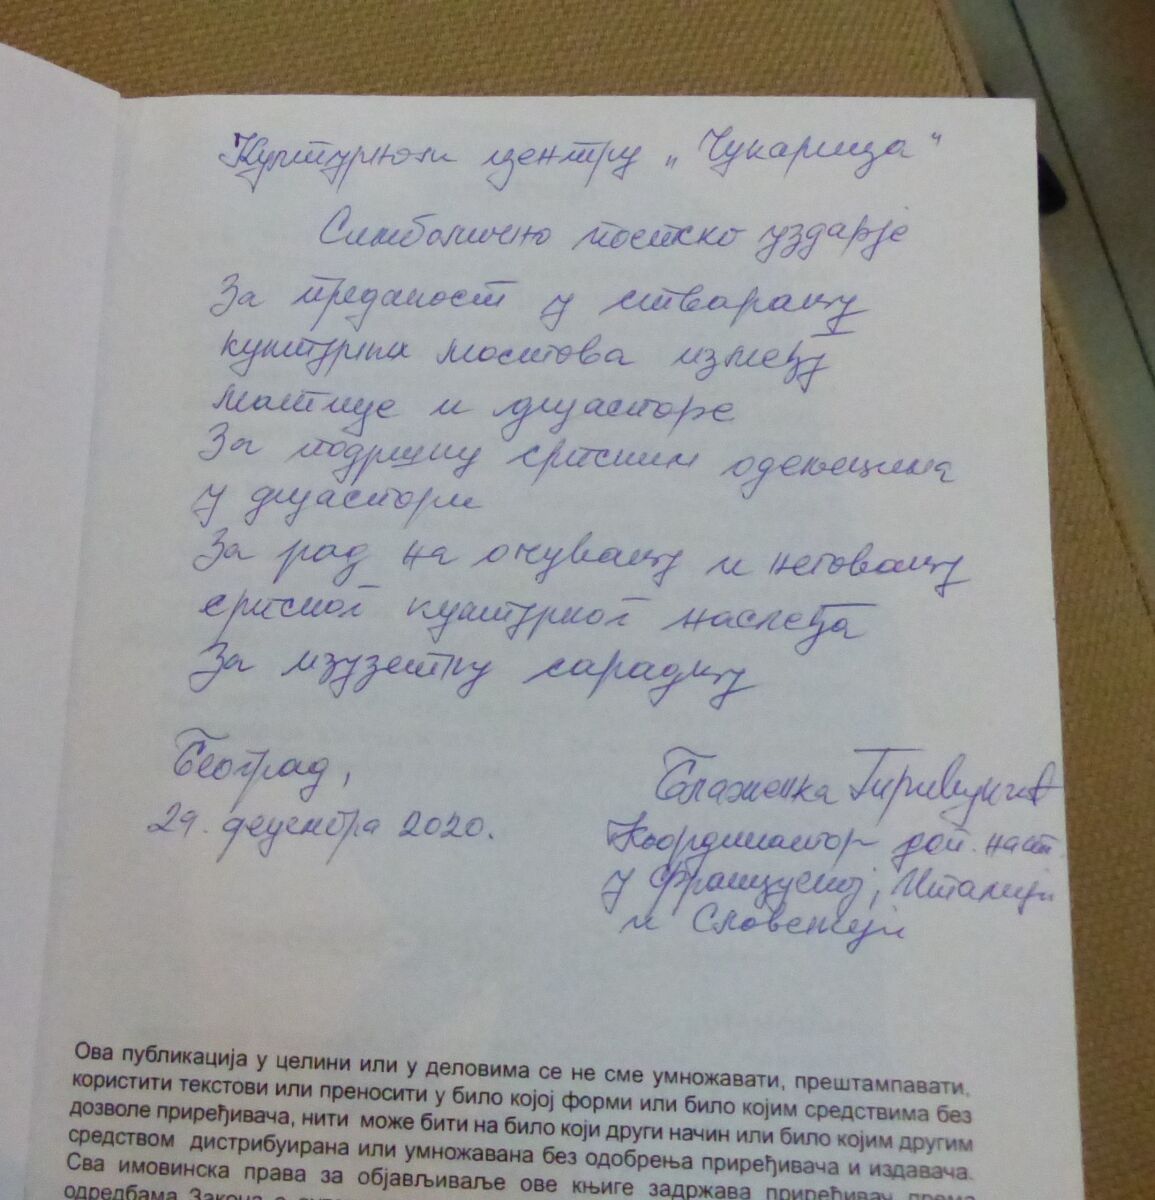 Културном центру „Чукарица“
Симболично поетско уздарје
За преданост у стварању
културних мостова између
матице и дијаспоре
За подршку српским одељењима
у дијаспори
За рад на очувању и неговању
српског културног наслеђа
За изузетну сарадњу
Београд,
29. децембра 2020.
Блаженка
Координатор доп. наст.
у Француској, Италији
и Словенији
Ова публикација у целини или у деловима се не сме умножавати, прештампавати,
користити текстови или преносити у било којој форми или било којим средствима без
дозволе приређивача, нити може бити на било који други начин или било којим другим
средством дистрибуирана или умножавана без одобрења приређивача и издавача.
Сва имовинска права за објављивање ове књиге задржава приређивач, према
одредбама Закона о